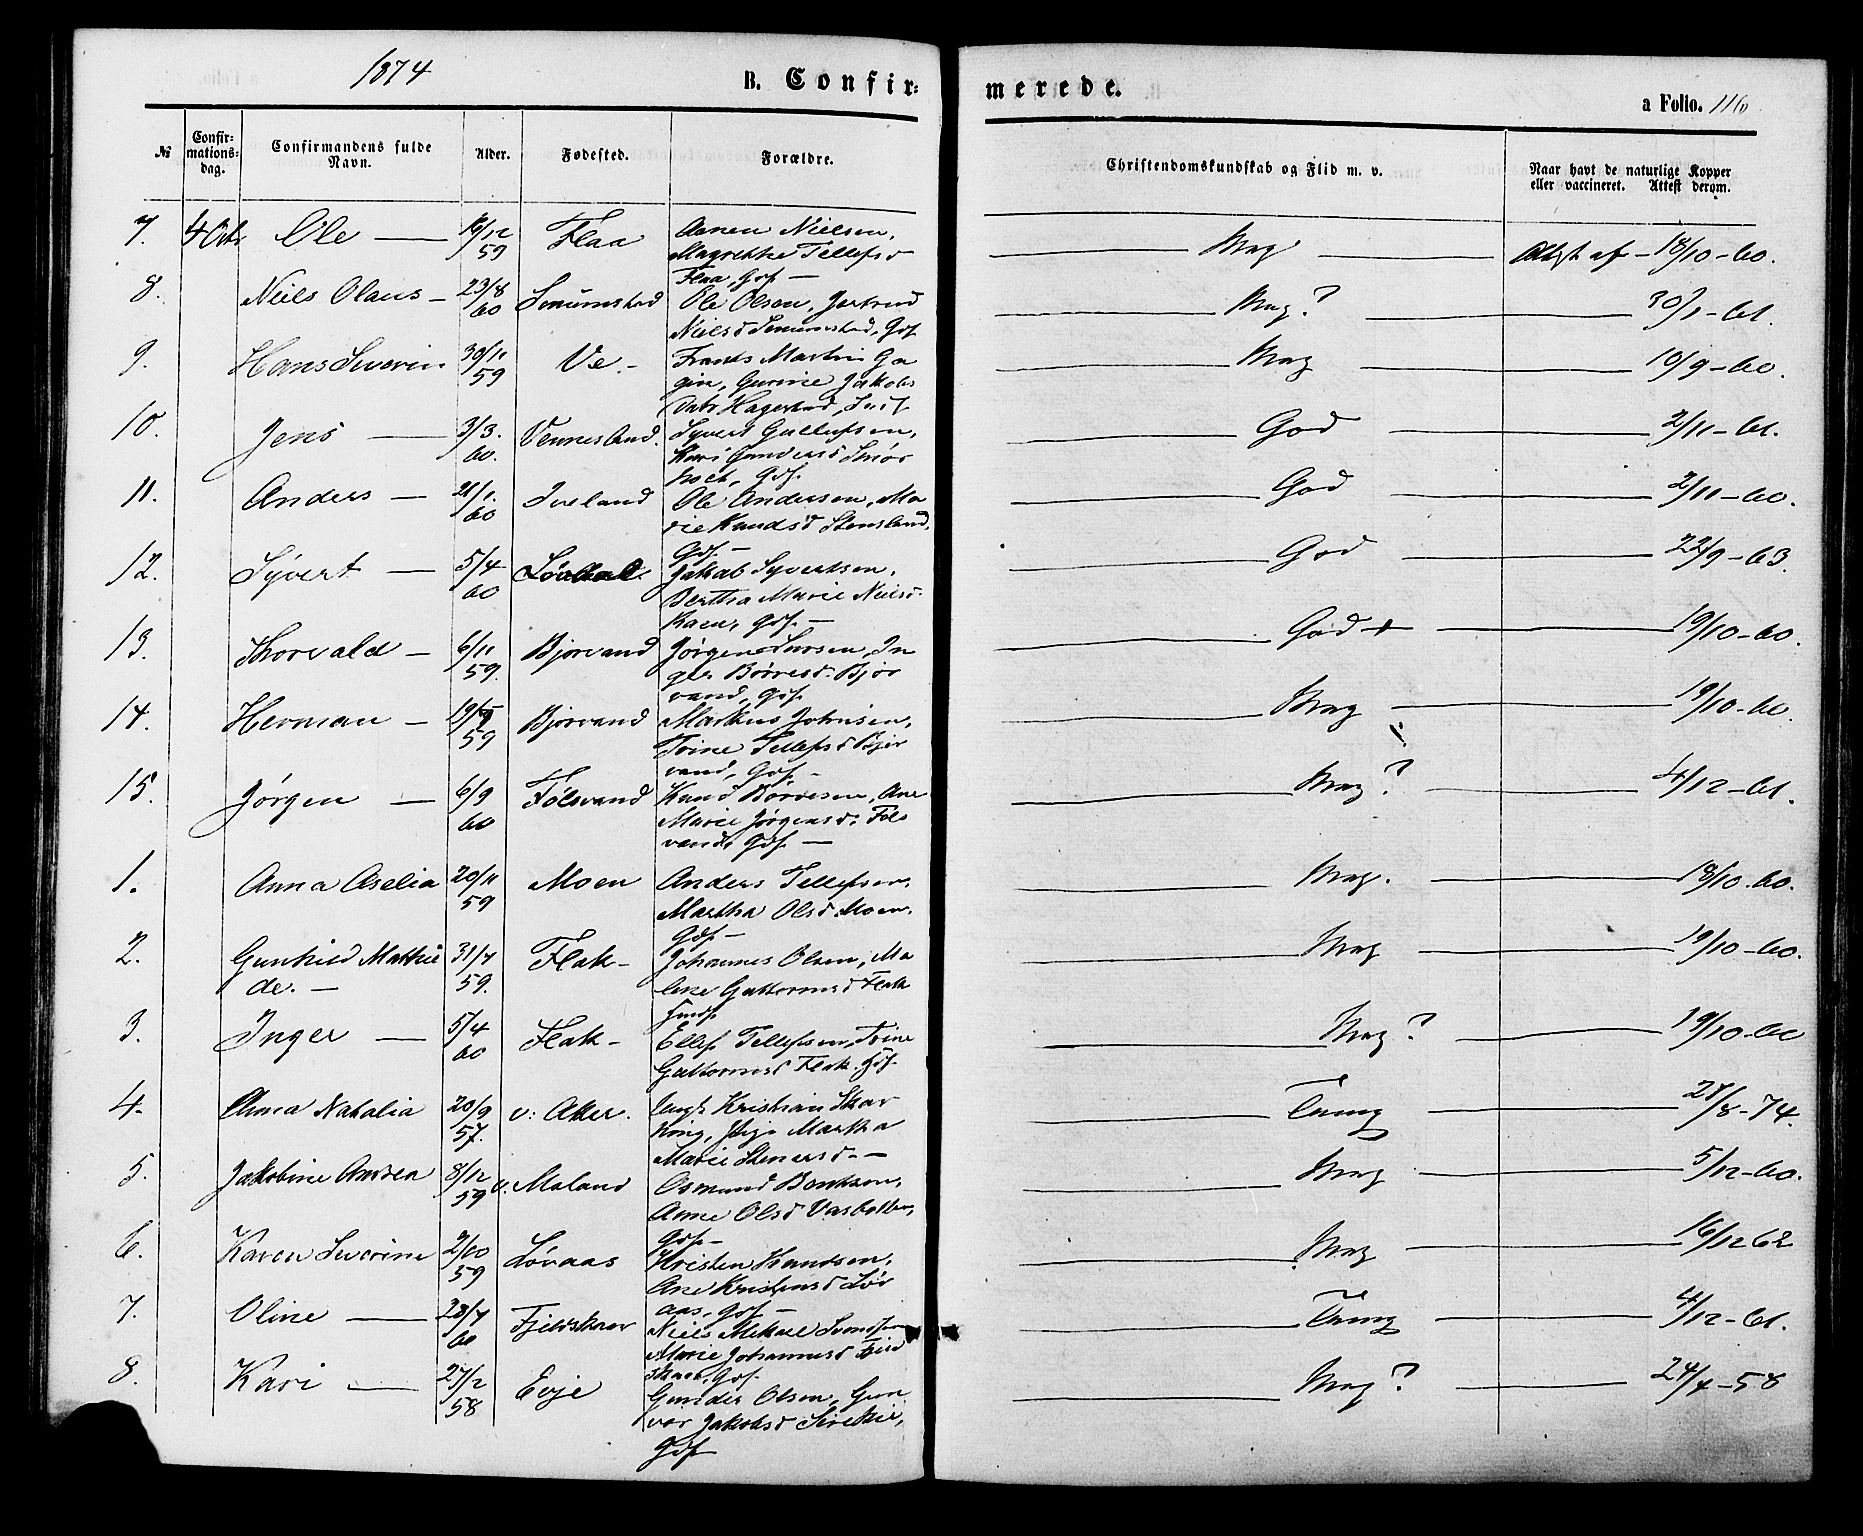 1874
B. Confir=
merede.
a Folio. 116
№
Confir=
mations=
dag.
Confirmandens fulde
Navn.
Alder.
Fødested.
Forældre.
Christendomskundskab og Flid m. v.
Naar havt de naturlige Kopper
eller vaccineret. Attest derom.
7. 4 Octr Ole — 16/12 59 Flaa
Aanen Nielsen,
Magrethe Tellefsd
Flaa, Gdf —
Mag — 18/10-60.
8. Niels Olaus — 23/8 60
Ole Olsen, Gertrud
Nielsd Gdf
Mag? 30/1-61.
9. Hans Severin 30/11 59 Ve. —
Frants Martin Ga
gin, Gurine Jakobs
datr Hagestad, Inds
Mag 10/9-60.
10. Jens — 3/3. 60. Vennesland.
Syvert Gullufsen,
Kari Gundersd
Gdf.
God 2/11-61.
11. Anders — 21/1. 60 Iveland
Ole Andersen, Ma
rie Knudsd Stensland,
Gdf. —
God 2/11-60.
12. Syvert — 5/4 60
Jakob Syvertsen,
Berthe Marie Nielsd.
Gdf. —
God 22/9-63.
13. Thorvald — 6/11 59. Bjorvand
Jørgen Larsen, In
ger Børresd. Bjor
vand, Gdf.
God + 19/10-60.
14. Herman — 59 Bjorvand
Markus Johnsen,
Trine Tellefsd Bjor
vand, Gdf —
Mag — 19/10-60.
15. Jørgen — 6/9 60 Følsvand
Knud Børresen, Ane
Marie Jørgensd. Føls
vand, Gdf —
Mag? 4/12-61.
1. Anna Aselia 20/11 59 Moen
Anders Tellefsen,
Martha Olsd Moen,
Gdf —
Mag. 18/10-60.
2. Gunhild Mathil
de. — 31/7 59. Flak —
Johannes Olsen, Ma
lene Guttormsd Flak
Indf
Mag 19/10-60.
3. Inger — 5/4 60 Flak —
Ellef Tellefsen, Trine
Guttormsd Flak. Gdf.
Mag? 19/10-60
4. Anna Nathalia 20/9 57. v: Aker.
Ungk Kristian Skar
King, Pige Martha
Marie Stenersd. —
Taaug 28/8-74.
5. Jakobine Andrea 8/12 59 v. Moland
Osmund Bentsen,
Anne Olsd Vasbotten,
Gdf —
Mag 5/12-60.
6. Karen Severine 2/10 59 Løvaas
Kristen Knudsen,
Ane Kristensd Løv
aas, Gdf —
Mag 16/12 62
7. Oline — 28/7 60 Fjeldskar
Niels Mikael Svendsen
Marie Johannesd Fjeld
skar, Gdf.
Taaug 4/12-61.
8. Kari — 27/2 58 Evje
Gunder Olsen, Gun
vor Jakobsd
Gdf
Mag? 24/4-58